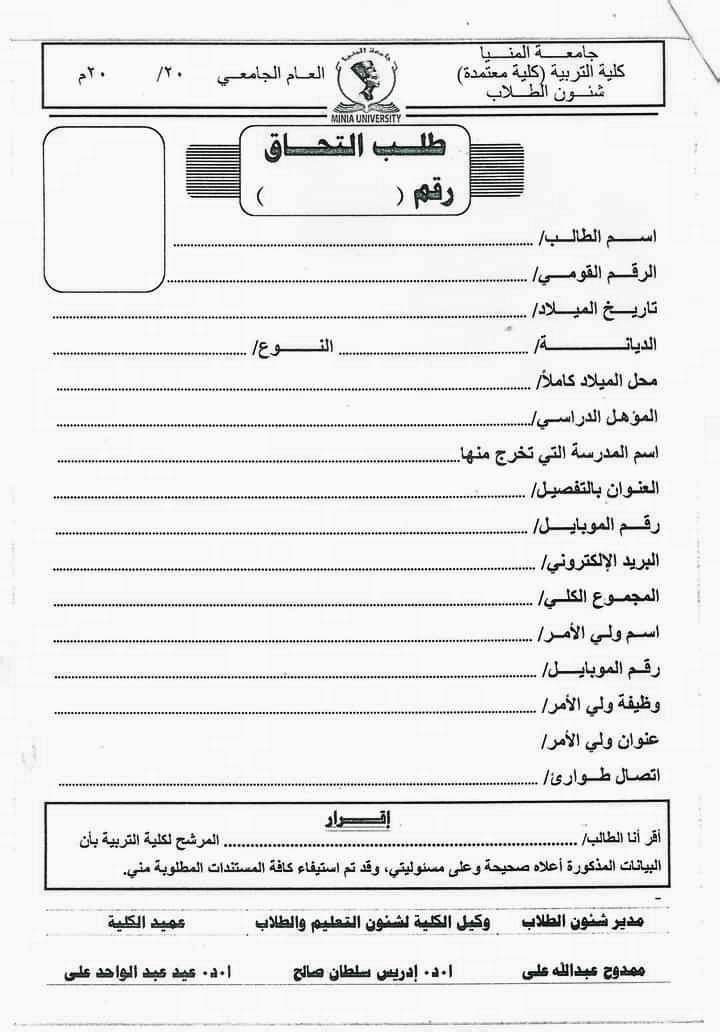 جامعة المنيا
كلية التربية (كلية معتمدة)
شئون الطلاب
جامعة المنيا
MINIA UNIVERSITY
العام الجامعي ٢٠ / ٢٠م
طلب التحاق
رقم ( )
اسم الطالب/
الرقم القومي/
تاريخ الميلاد/
الديانة/ النوع/
محل الميلاد كاملاً/
المؤهل الدراسي/
اسم المدرسة التي تخرج منها
العنوان بالتفصيل/
رقم الموبايل/
البريد الإلكتروني/
المجموع الكلي/
اسم ولي الأمر/
رقم الموبايل/
وظيفة ولي الأمر/
عنوان ولي الأمر/
اتصال طوارئ/
إقرار
أقر أنا الطالب/ المرشح لكلية التربية بأن
البيانات المذكورة أعلاه صحيحة وعلى مسئوليتي، وقد تم استيفاء كافة المستندات المطلوبة مني.
مدير شئون الطلاب وكيل الكلية لشئون التعليم والطلاب عميد الكلية
ممدوح عبدالله على ا٠د٠ إدريس سلطان صالح ا٠د٠ عيد عبد الواحد على